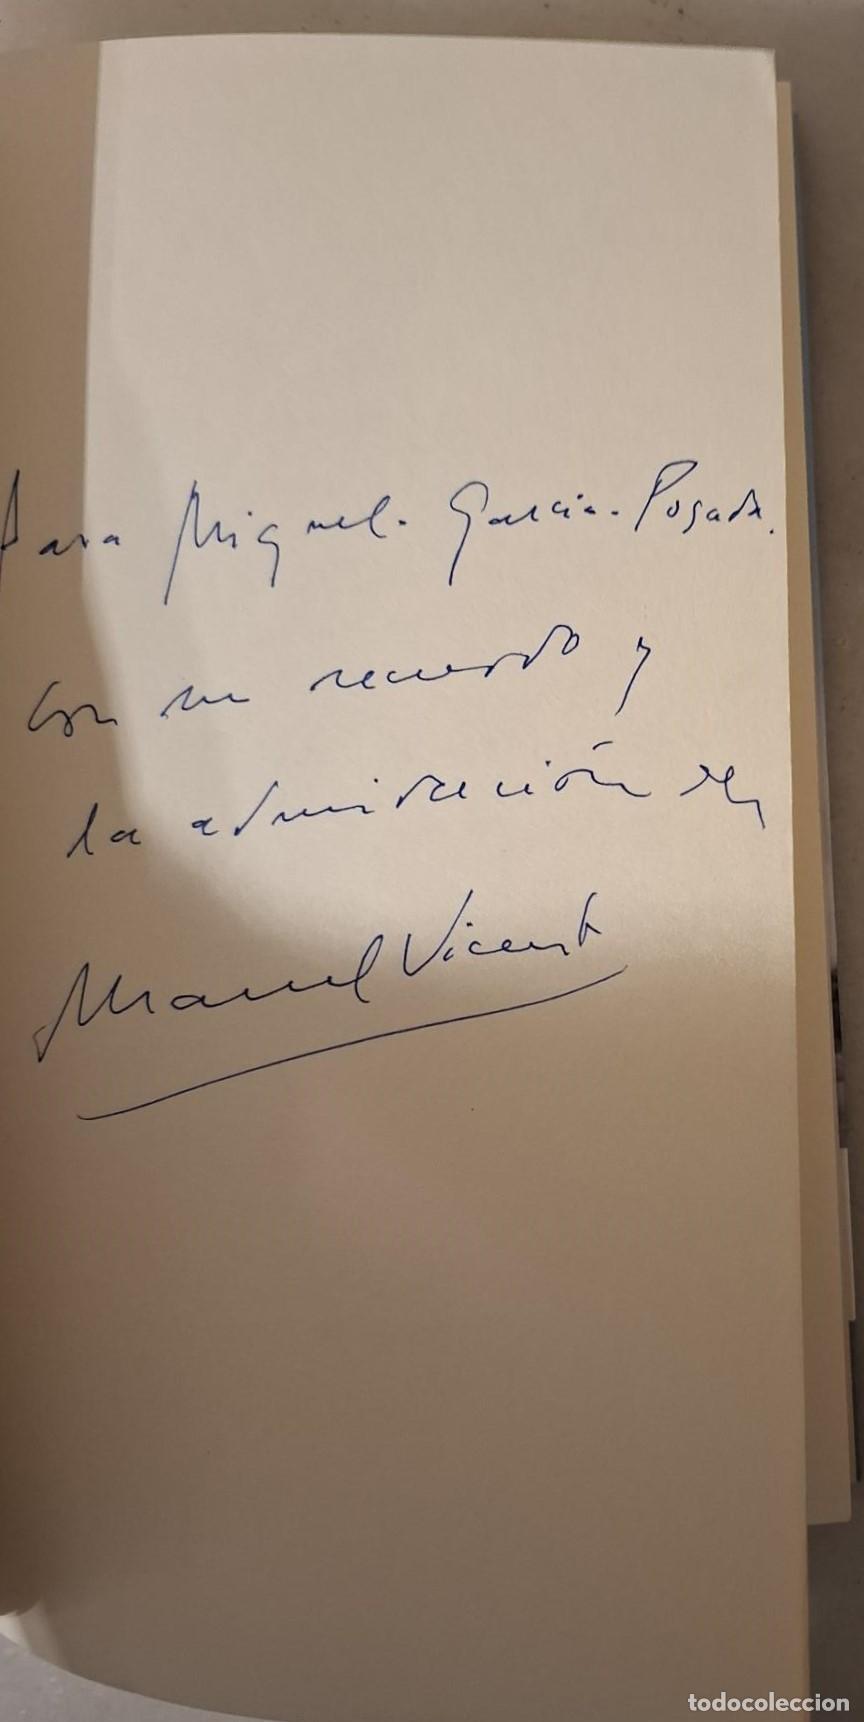 Para Miguel García-Posada,
con un recuerdo y
la admiración de
Manuel Vicent
todocoleccion